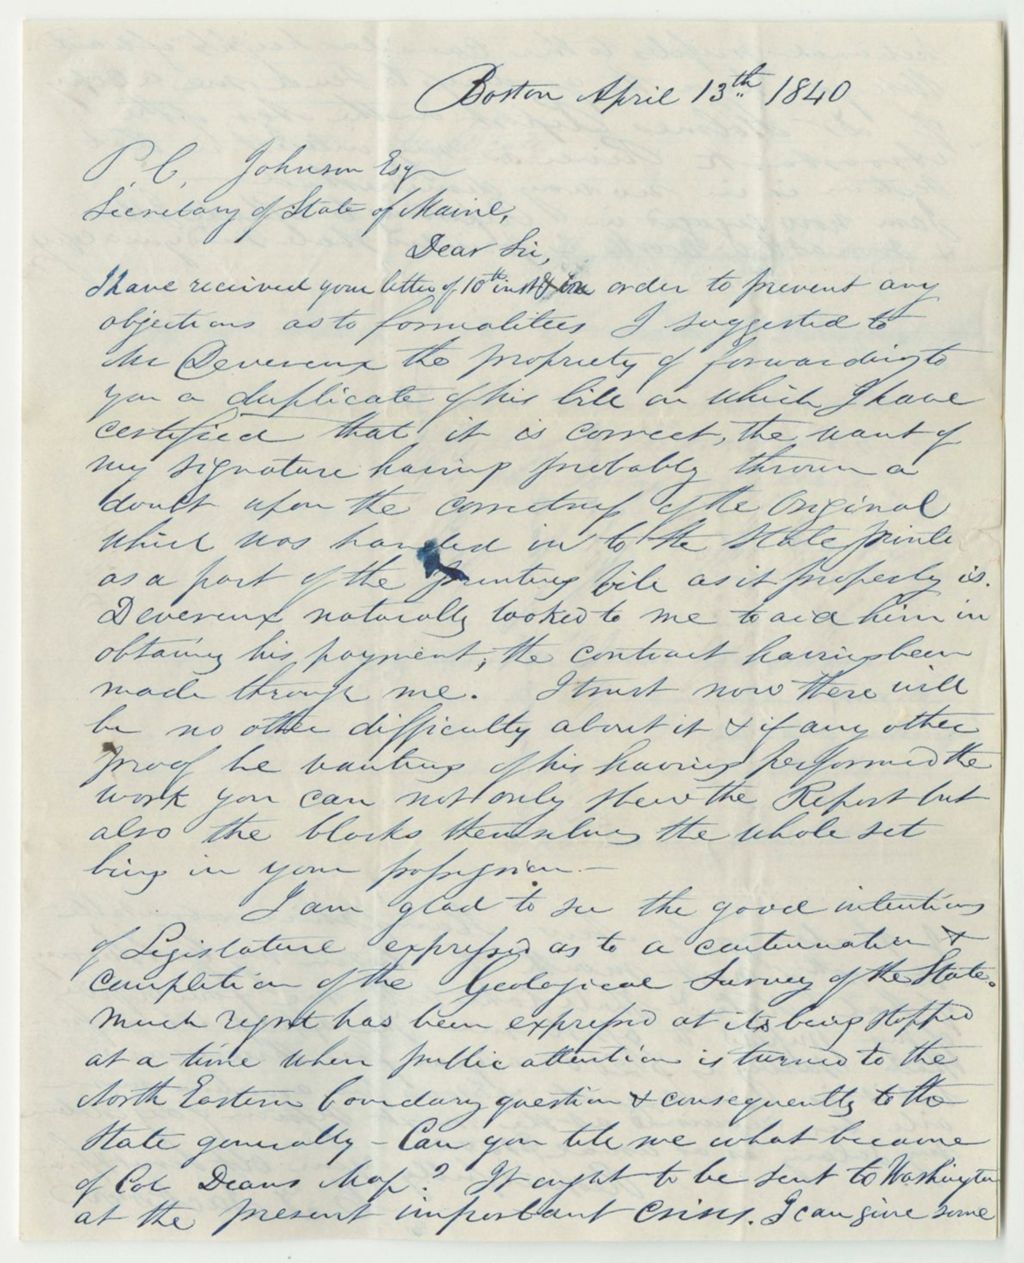 Boston April 13th 1840
P. C. Johnson Esq
Secretary of State of Maine,
Dear Sir,
I have received your letter of 10th inst & in order to prevent any
objections as to formalities I suggested to
Mr Devereux the propriety of forwarding to
you a duplicate of his bill on which I have
certified that it is correct, the want of
my signature having probably thrown a
doubt upon the correctness of the Original
which was handed in to the State printer
as a part of the printing bill as it properly is.
Devereux naturally looked to me to aid him in
obtaining his payment, the contract having been
made through me. I trust now there will
be no other difficulty about it & if any other
proof be wanting of his having performed the
work you can not only shew the Report but
also the blocks themselves the whole set
being in your possession. —
I am glad to see the good intentions
of Legislature expressed as to a continuation &
completion of the Geological Survey of the State.
Much regret has been expressed at its being stopped
at a time when public attention is turned to the
North Eastern boundary question & consequently to the
State generally - Can you tell me what became
of Col Deans Map? It ought to be sent to Washington
at the present important crisis. I can give some